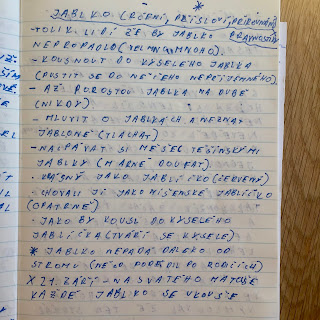 *
JABLKO (RČENÍ, PŘÍSLOVÍ, PŘIROVNÁNÍ)
-TOLIK LIDÍ ŽE BY JABLKO
NEPROPADLO (VELMI MNOHO).
- KOUSNOUT DO KYSELÉHO JABLKA
(PUSTIT SE DO NĚČEHO NEPŘÍJEMNÉHO).
- AŽ POROSTOU JABLKA NA DUBĚ
(NIKDY)
- MLUVIT O JABLKÁCH A NEZNAT
JABLONĚ (TLACHAT)
- NACPÁVAT SI MĚŠEC TĚŠÍNSKÝMI
JABLKY (MARNĚ DOUFAT)
- JAKO JABLÍČKO (ČERVENÝ)
- CHOVALI JI JAKO MÍŠENSKÉ JABLÍČKO
(OPATRNĚ)
- JAKO BY KOUSL DO KYSELÉHO
JABLÍČKA (TVÁŘÍ SE KYSELE)
* JABLKO NEPADÁ DALEKO OD
STROMU (NĚCO PODĚDIL PO RODIČÍCH)
X 21. ZÁŘÍ - NA SVATÉHO MATOUŠE
KAŽDÉ JABLKO SE UKOUŠE